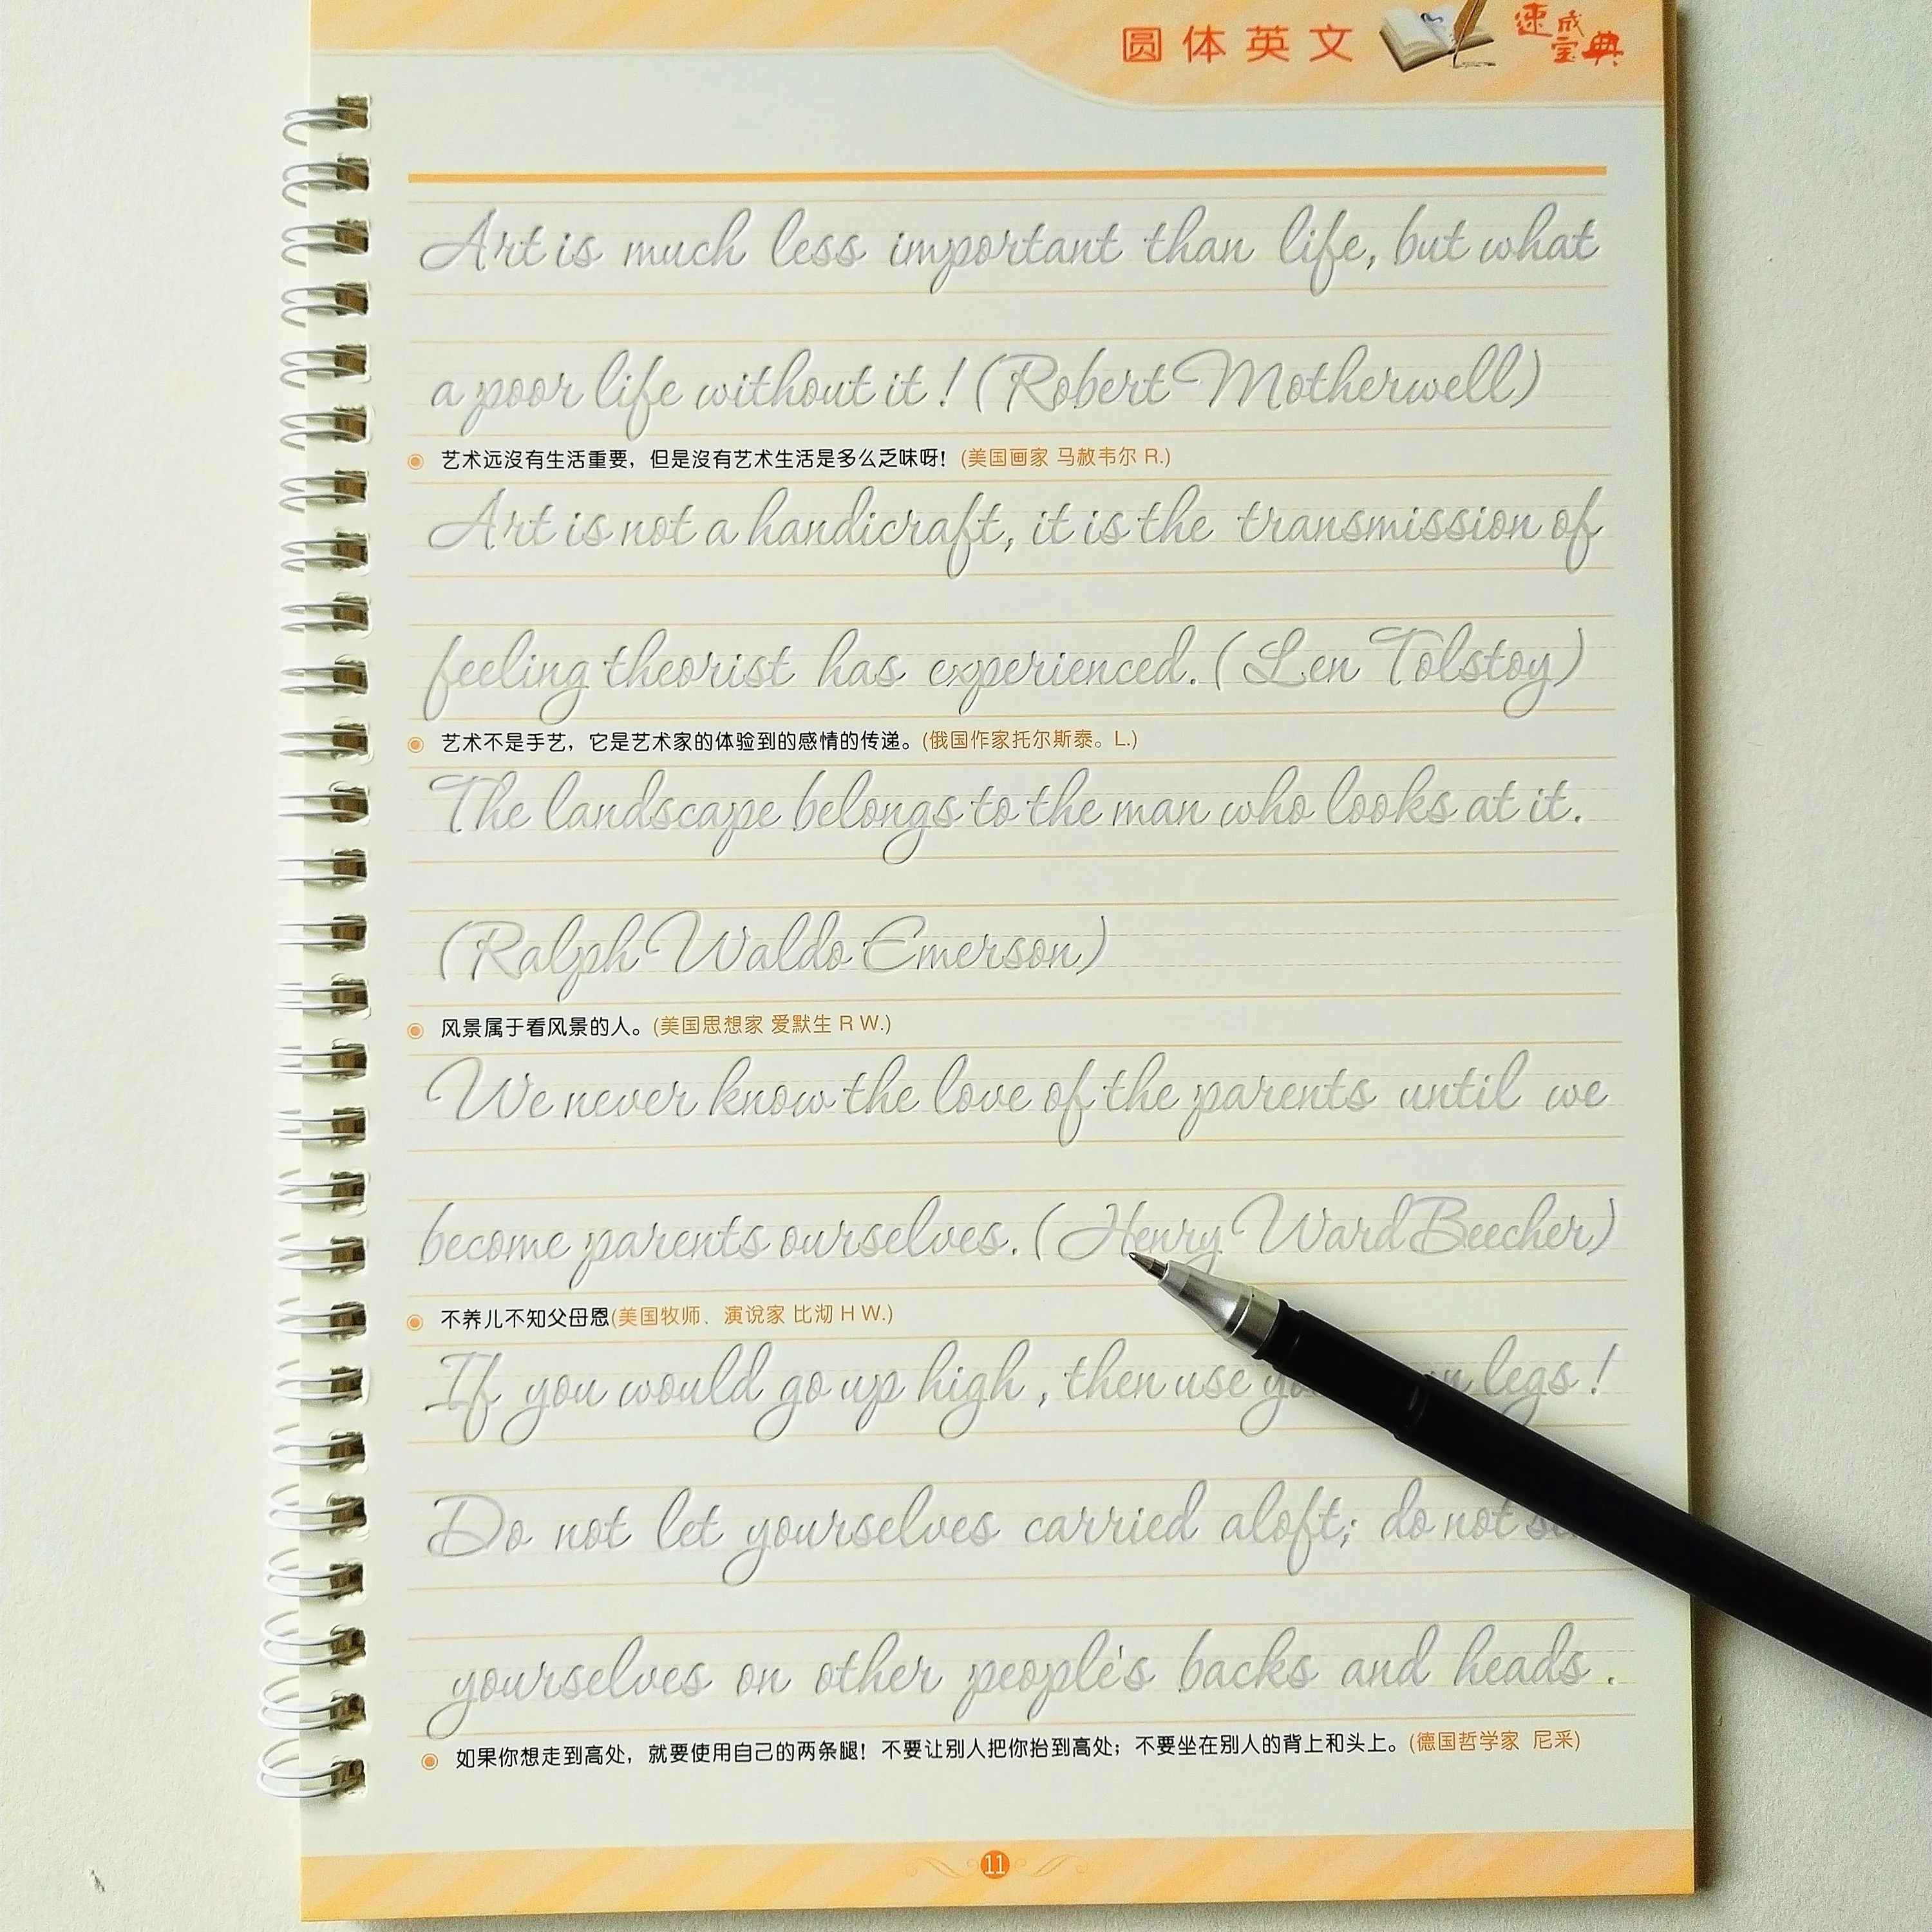 圆体英文 速成宝典
Art is much less important than life, but what
a poor life without it! (Robert Motherwell)
艺术远沒有生活重要，但是沒有艺术生活是多么乏味呀！(美国画家 马赦韦尔 R.)
Art is not a handicraft, it is the transmission of
feeling theorist has experienced. (Len Tolstoy)
艺术不是手艺，它是艺术家的体验到的感情的传递。(俄国作家托尔斯泰。L.)
The landscape belongs to the man who looks at it.
(Ralph Waldo Emerson)
风景属于看风景的人。(美国思想家 爱默生 R W.)
We never know the love of the parents until we
become parents ourselves. (Henry Ward Beecher)
不养儿不知父母恩(美国牧师、演说家 比沏 H W.)
If you would go up high, then use legs!
Do not let yourselves carried aloft; do not
yourselves on other people's backs and heads.
如果你想走到高处，就要使用自己的两条腿！不要让别人把你抬到高处；不要坐在别人的背上和头上。(德国哲学家 尼采)
11